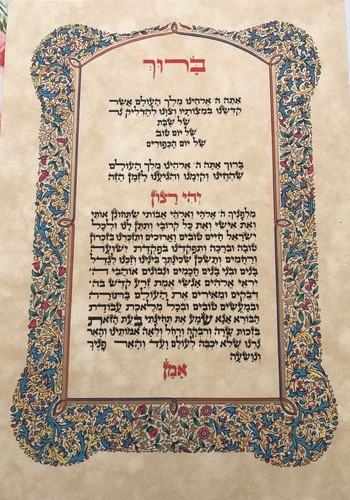 בָּרוּךְ
אַתָּה ה' אֱלֹהֵינוּ מֶלֶךְ הָעוֹלָם אֲשֶׁר
קִדְּשָׁנוּ בְּמִצְוֹתָיו וְצִוָּנוּ לְהַדְלִיק נֵר
שֶׁל שַׁבָּת
שֶׁל יוֹם טוֹב
שֶׁל יוֹם הַכִּפּוּרִים
בָּרוּךְ אַתָּה ה' אֱלֹהֵינוּ מֶלֶךְ הָעוֹלָם
שֶׁהֶחֱיָנוּ וְקִיְּמָנוּ וְהִגִּיעָנוּ לַזְּמַן הַזֶּה
יְהִי רָצוֹן
מִלְּפָנֶיךָ ה' אֱלֹהַי וֵאלֹהֵי אֲבוֹתַי שֶׁתְּחוֹנֵן אוֹתִי
וְאֶת אִישִׁי וְאֶת כָּל קְרוֹבַי וְתִתֵּן לָנוּ וּלְכָל
יִשְׂרָאֵל חַיִּים טוֹבִים וַאֲרוּכִים וְתִזְכְּרֵנוּ בְּזִכְרוֹן
טוֹבָה וּבְרָכָה וְתִפְקְדֵנוּ בִּפְקֻדַּת יְשׁוּעָה
וְרַחֲמִים וְתַשְׁכֵּן שְׁכִינָתְךָ בֵּינֵינוּ וְזַכֵּנוּ לְגַדֵּל
בָּנִים וּבְנֵי בָנִים חֲכָמִים וּנְבוֹנִים אוֹהֲבֵי ה'
יִרְאֵי אֱלֹהִים אַנְשֵׁי אֱמֶת זֶרַע קֹדֶשׁ בַּה'
דְּבֵקִים וּמְאִירִים אֶת הָעוֹלָם בַּתּוֹרָה
וּבְמַעֲשִׂים טוֹבִים וּבְכָל מְלֶאכֶת עֲבוֹדַת
הַבּוֹרֵא אָנָּא שְׁמַע אֶת תְּחִנָּתִי בָּעֵת הַזֹּאת
בִּזְכוּת שָׂרָה וְרִבְקָה וְרָחֵל וְלֵאָה אִמּוֹתֵינוּ וְהָאֵר
נֵרֵנוּ שֶׁלֹּא יִכְבֶּה לְעוֹלָם וָעֶד וְהָאֵר פָּנֶיךָ
וְנִוָּשֵׁעָה
אָמֵן